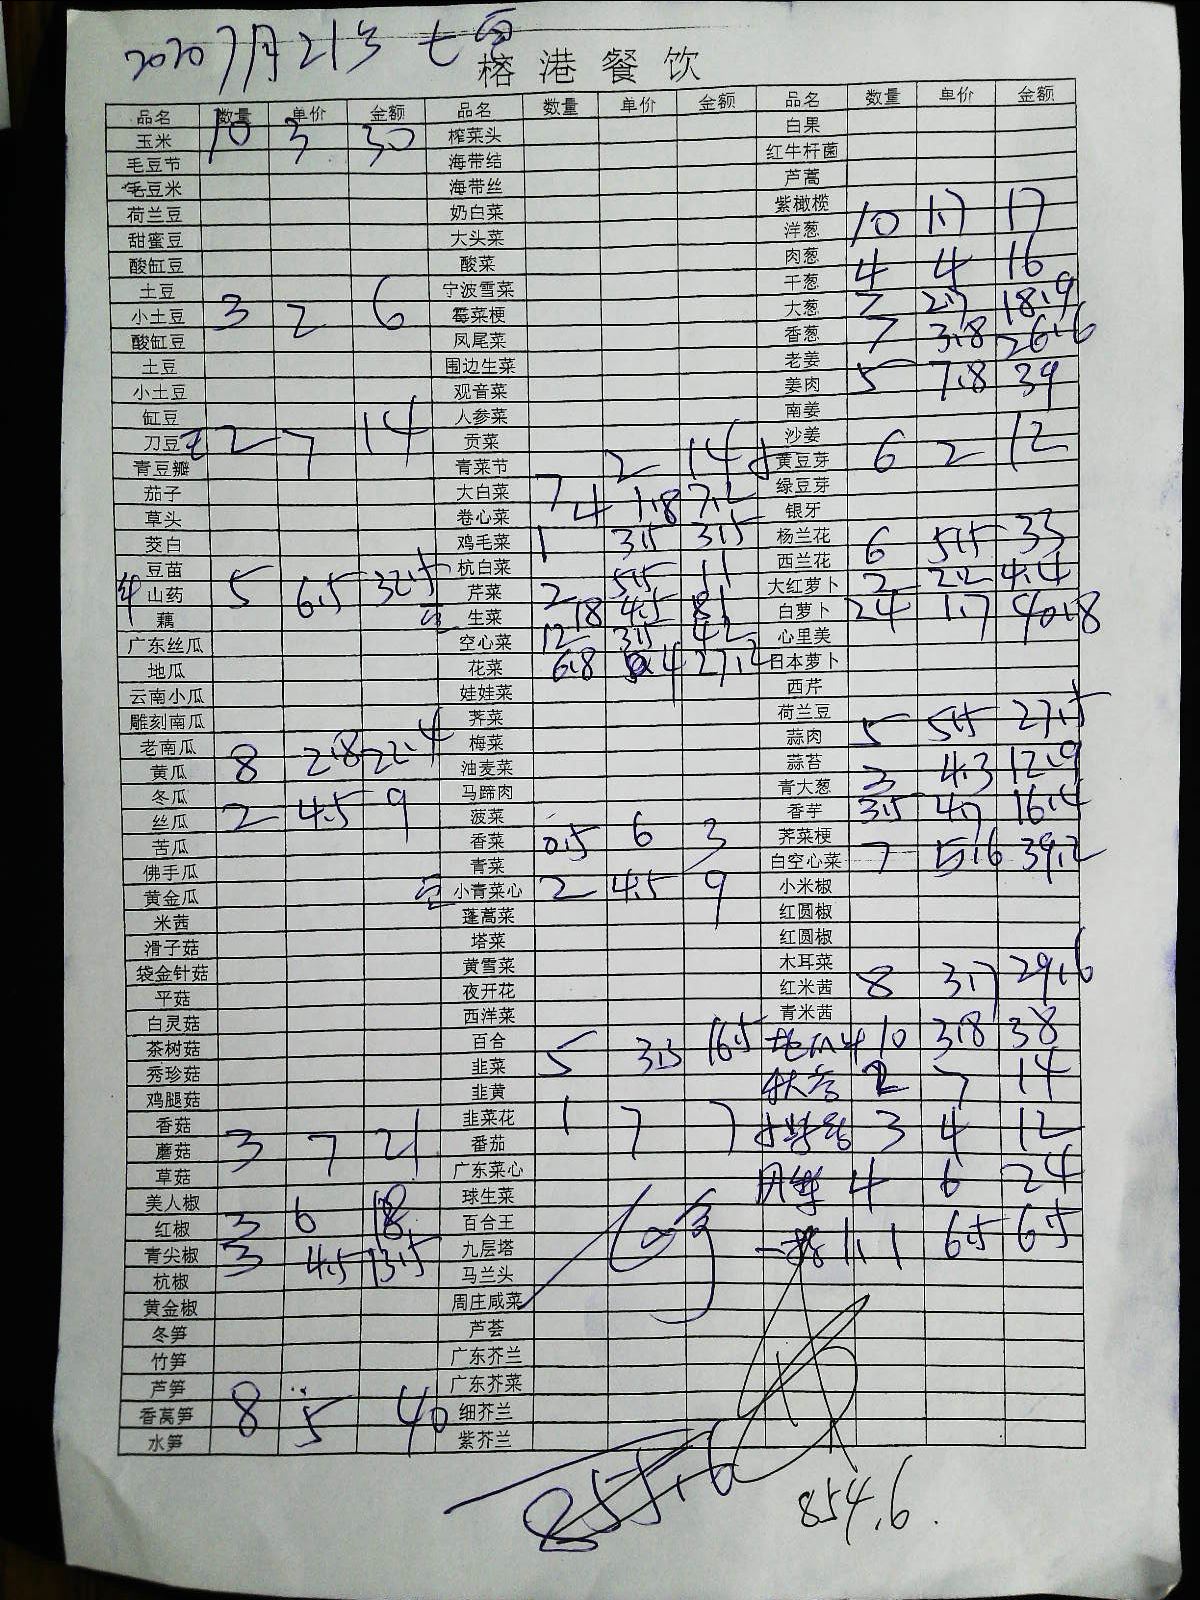 2020 7月21号
榕港餐饮
品名 数量 单价 金额 品名 数量 单价 金额 品名 数量 单价 金额
玉米 10 3 30 榨菜头 白果
毛豆节 海带结 红牛杆菌
毛豆米 海带丝 芦蒿
荷兰豆 奶白菜 紫橄榄
甜蜜豆 大头菜 洋葱 10 1.7 17
酸缸豆 酸菜 肉葱
土豆 宁波雪菜 干葱 4 4 16
小土豆 3 2 6 霉菜梗 大葱 7 2.7 18.9
酸缸豆 凤尾菜 香葱 7 3.8 26.6
土豆 围边生菜 老姜
小土豆 观音菜 姜肉 5 7.8 39
缸豆 人参菜 南姜
刀豆 2 7 14 贡菜 沙姜
青豆瓣 青菜节 黄豆芽 6 2 12
茄子 大白菜 7 2 14 绿豆芽
草头 卷心菜 4 1.8 7.2 银牙
茭白 鸡毛菜 1 3.5 3.5 杨兰花
豆苗 杭白菜 西兰花 6 5.5 33
山药 5 6.5 32.5 芹菜 2 5.5 11 大红萝卜 2 2.2 4.4
藕 生菜 18 4.5 81 白萝卜 24 1.7 40.8
广东丝瓜 空心菜 12 3.5 42 心里美
地瓜 花菜 6.8 4 27.2 日本萝卜
云南小瓜 娃娃菜 西芹
雕刻南瓜 荠菜 荷兰豆
老南瓜 梅菜 蒜肉 5 5.5 27.5
黄瓜 8 2.8 22.4 油麦菜 蒜苔
冬瓜 马蹄肉 青大葱 3 4.3 12.9
丝瓜 2 4.5 9 菠菜 香芋 3.5 4.7 16.4
苦瓜 香菜 0.5 6 3 荠菜梗
佛手瓜 青菜 白空心菜 7 5.6 39.2
黄金瓜 小青菜心 2 4.5 9 小米椒
米茜 蓬蒿菜 红圆椒
滑子菇 塔菜 红圆椒
袋金针菇 黄雪菜 木耳菜
平菇 夜开花 红米茜 8 3.7 29.6
白灵菇 西洋菜 青米茜
茶树菇 百合 地瓜叶 10 3.8 38
秀珍菇 韭菜 5 3.3 16.5 2 7 14
鸡腿菇 韭黄
香菇 韭菜花 1 7 7 3 4 12
蘑菇 3 7 21 番茄
草菇 广东菜心 4 6 24
美人椒 球生菜
红椒 3 6 18 百合王 1.1 6.5 6.5
青尖椒 3 4.5 13.5 九层塔
杭椒 马兰头
黄金椒 周庄咸菜
冬笋 芦荟
竹笋 广东芥兰
芦笋 广东芥菜
香莴笋 8 5 40 细芥兰
水笋 紫芥兰
855.6
854.6